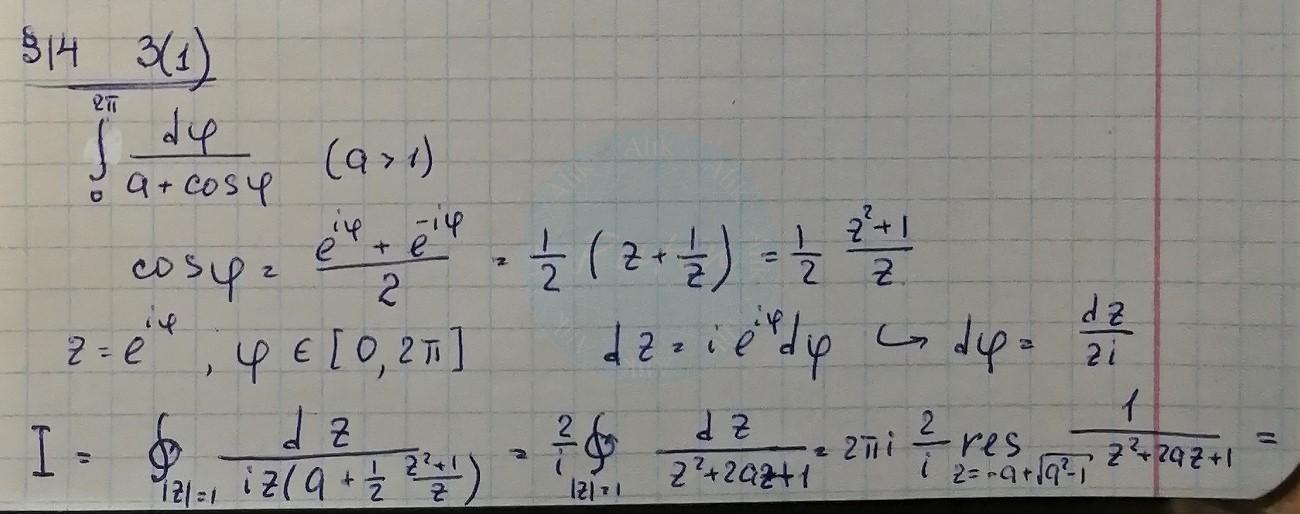 §14 3(1)
∫₀^{2π} dφ/(a + cosφ) (a > 1)
cosφ = (e^{iφ} + e^{-iφ})/2 = 1/2 (z + 1/z) = 1/2 (z²+1)/z
z = e^{iφ}, φ ∈ [0, 2π] dz = i e^{iφ} dφ ↪ dφ = dz/(zi)
I = ∮_{|z|=1} dz/(iz(a + 1/2 (z²+1)/z)) = 2/i ∮_{|z|=1} dz/(z²+2az+1) = 2πi 2/i res_{z=-a+√(a²-1)} 1/(z²+2az+1) =